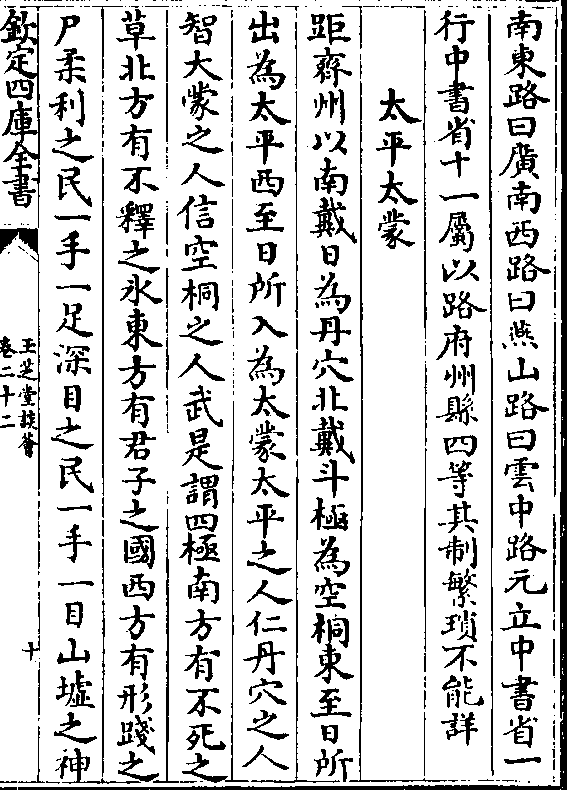 南東路曰廣南西路曰燕山路曰雲中路元立中書省一
行中書省十一屬以路府州縣四等其制繁瑣不能詳
太平太蒙
距齊州以南戴日為丹穴北戴斗極為空桐東至日所
出為太平西至日所入為太蒙太平之人仁丹穴之人
智大蒙之人信空桐之人武是謂四極南方有不死之
草北方有不釋之氷東方有君子之國西方有形踐之
尸柔利之民一手一足深目之民一手一目山墟之神
欽定四庫全書
玉芝堂談薈
卷二十二
十